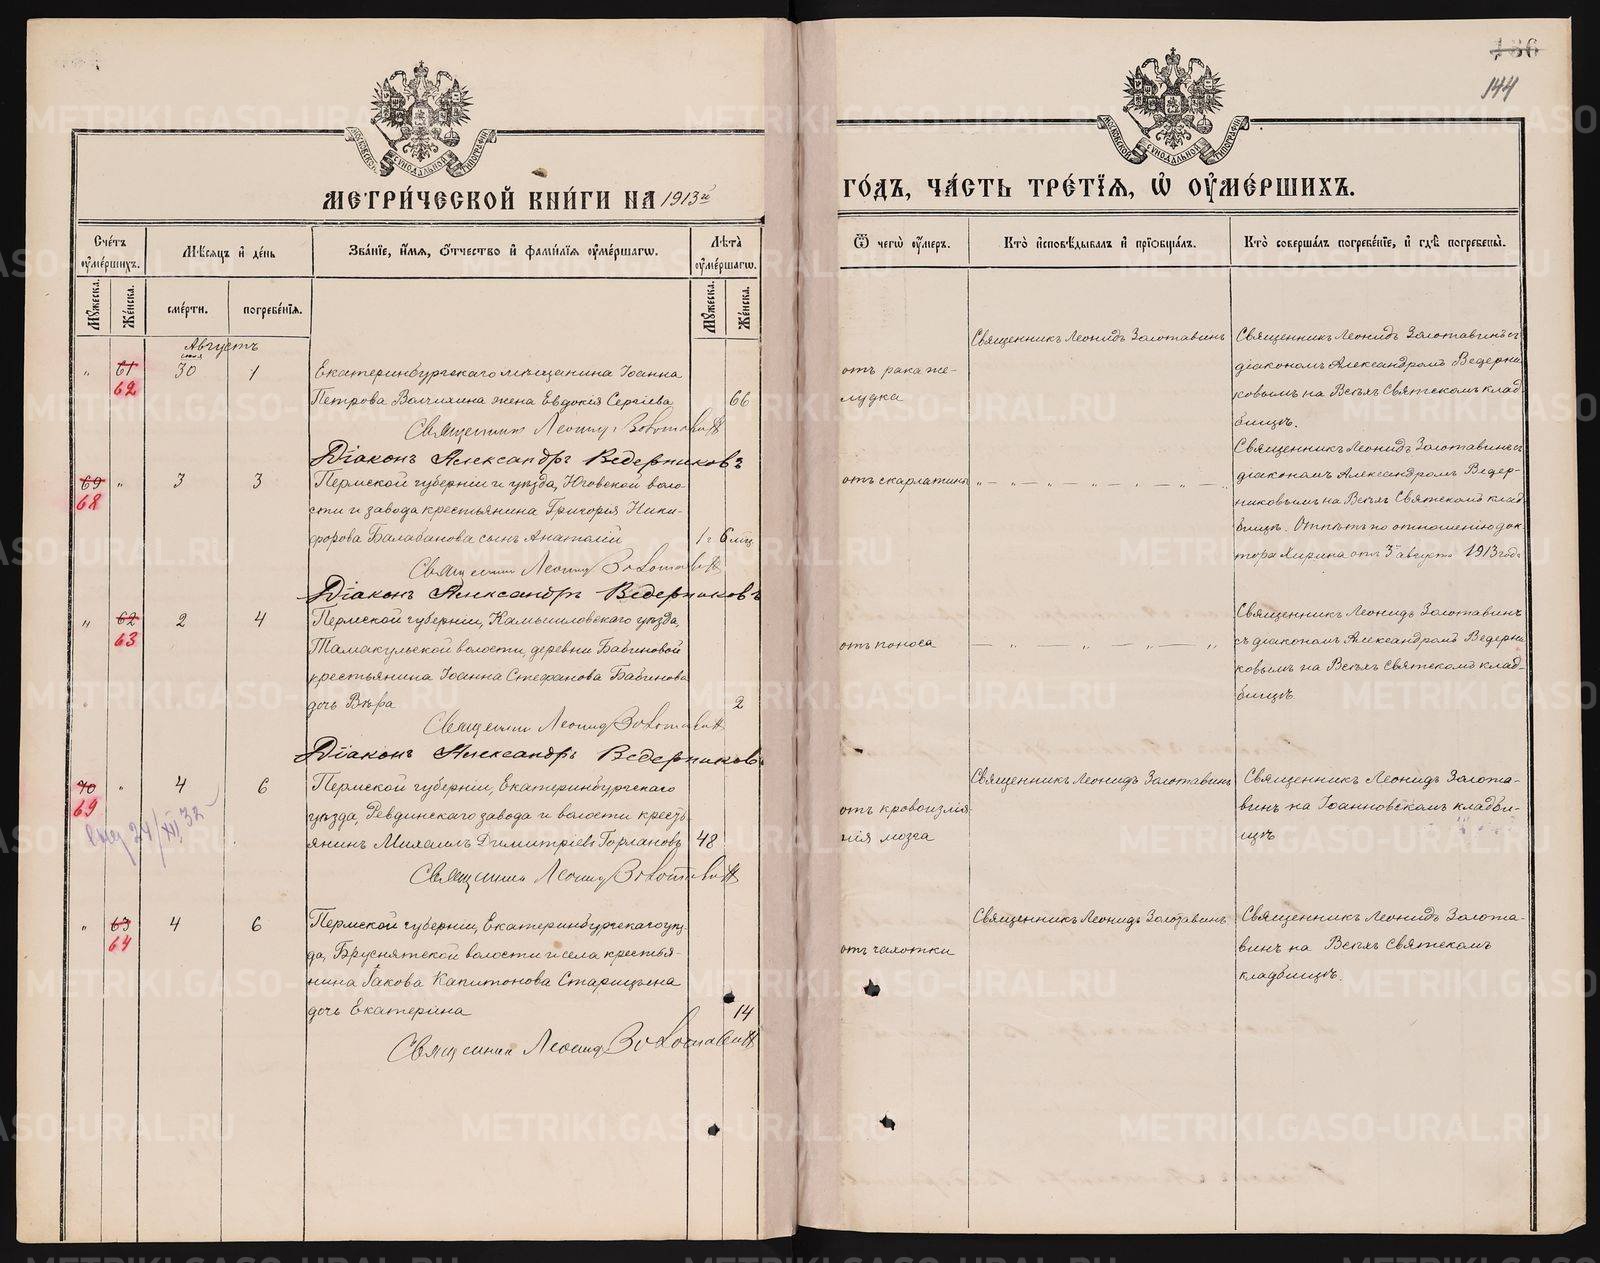 186
144
МЕТРИ́ЧЕСКОЙ КНИ́ГИ НА 1913й
ГО́ДЪ, ЧА́СТЬ ТРЕ́ТЇЯ, Ѡ҆ ОУ҆МЕ́РШИХЪ.
Сче́тъ оу҆ме́ршихъ.
Мѣ́сяцъ и҆ де́нь
Зва́нїе, и҆́мя, ѻ҆́тчество и҆ фами́лїя оу҆ме́ршагѡ.
Лѣ́та̀ оу҆ме́ршагѡ.
Ѿ чегѡ̀ оу҆́меръ.
Кто̀ и҆сповѣ́дывалъ и҆ прїѡбща́лъ.
Кто̀ соверша́лъ погребе́нїе, и҆ гдѣ̀ погребены̀.
Мꙋ́жеска.
Же́нска.
сме́рти.
погребе́нїя.
Мꙋ́жеска.
Же́нска.
Августъ
" 61 30 1 Екатеринбургскаго мѣщанина Іоанна
62
Петрова Волчихина жена Евдокия Сергіева 66
Священник Леонид Золотавин
Діаконъ Александръ Ведерниковъ
отъ рака же-
лудка
Священникъ Леонидъ Золотавинъ
Священникъ Леонидъ Золотавинъ съ
діакономъ Александромъ Ведерни
ковымъ на Всѣхъ Святскомъ клад
бищѣ.
69 " 3 3 Пермской губерніи и уѣзда, Юговской воло-
68
сти и завода крестьянина Григорія Ники-
форова Балабанова сынъ Анатолій 1 г 6 мц.
Священник Леонид Золотавин
Діаконъ Александръ Ведерниковъ
отъ скарлатины
" — " — " — " — " — "
Священникъ Леонидъ Золотавинъ съ
діакономъ Александромъ Ведер-
никовымъ на Всѣхъ Святскомъ клад
бищѣ. Отпѣтъ по отношенію док-
тора от 3 августа 1913 года
" 62 2 4 Пермской губерніи, Камышловскаго уѣзда
63
Тамакульской волости, деревни Бабиновой
крестьянина Іоанна Стефанова Бабинова
дочь Вѣра 2
Священник Леонид Золотавин
Діаконъ Александръ Ведерниковъ
отъ поноса
— " — " — " — "
Священникъ Леонидъ Золотавинъ
съ діакономъ Александромъ Ведерни
ковымъ на Всѣхъ Святскомъ клад-
бищѣ.
70 " 4 6 Пермской губерніи, Екатеринбургскаго
69
24/XII 32
уѣзда, Ревдинскаго завода и волости кресть-
янинъ Михаилъ Димитріевъ Горлановъ 48
Священник Леонид Золотавин
отъ кровоизлія
нія мозга
Священникъ Леонидъ Золотавинъ
Священникъ Леонидъ Золота-
винъ на Іоанновскомъ кладби-
щѣ
" 63 4 6 Пермской губерніи, Екатеринбургскаго уѣз-
64
да, Бруснятской волости и села крестья-
нина Іакова Капитонова Старицына
дочь Екатерина 14
Священник Леонид Золотавин
отъ чахотки
Священникъ Леонидъ Золотавинъ
Священникъ Леонидъ Золота-
винъ на Всѣхъ Святскомъ
кладбищѣ.
METRIKI.GASO-URAL.RU